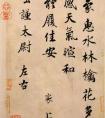 蒙惠水林檎花多
感天氣暄和
體履佳安
太尉左右